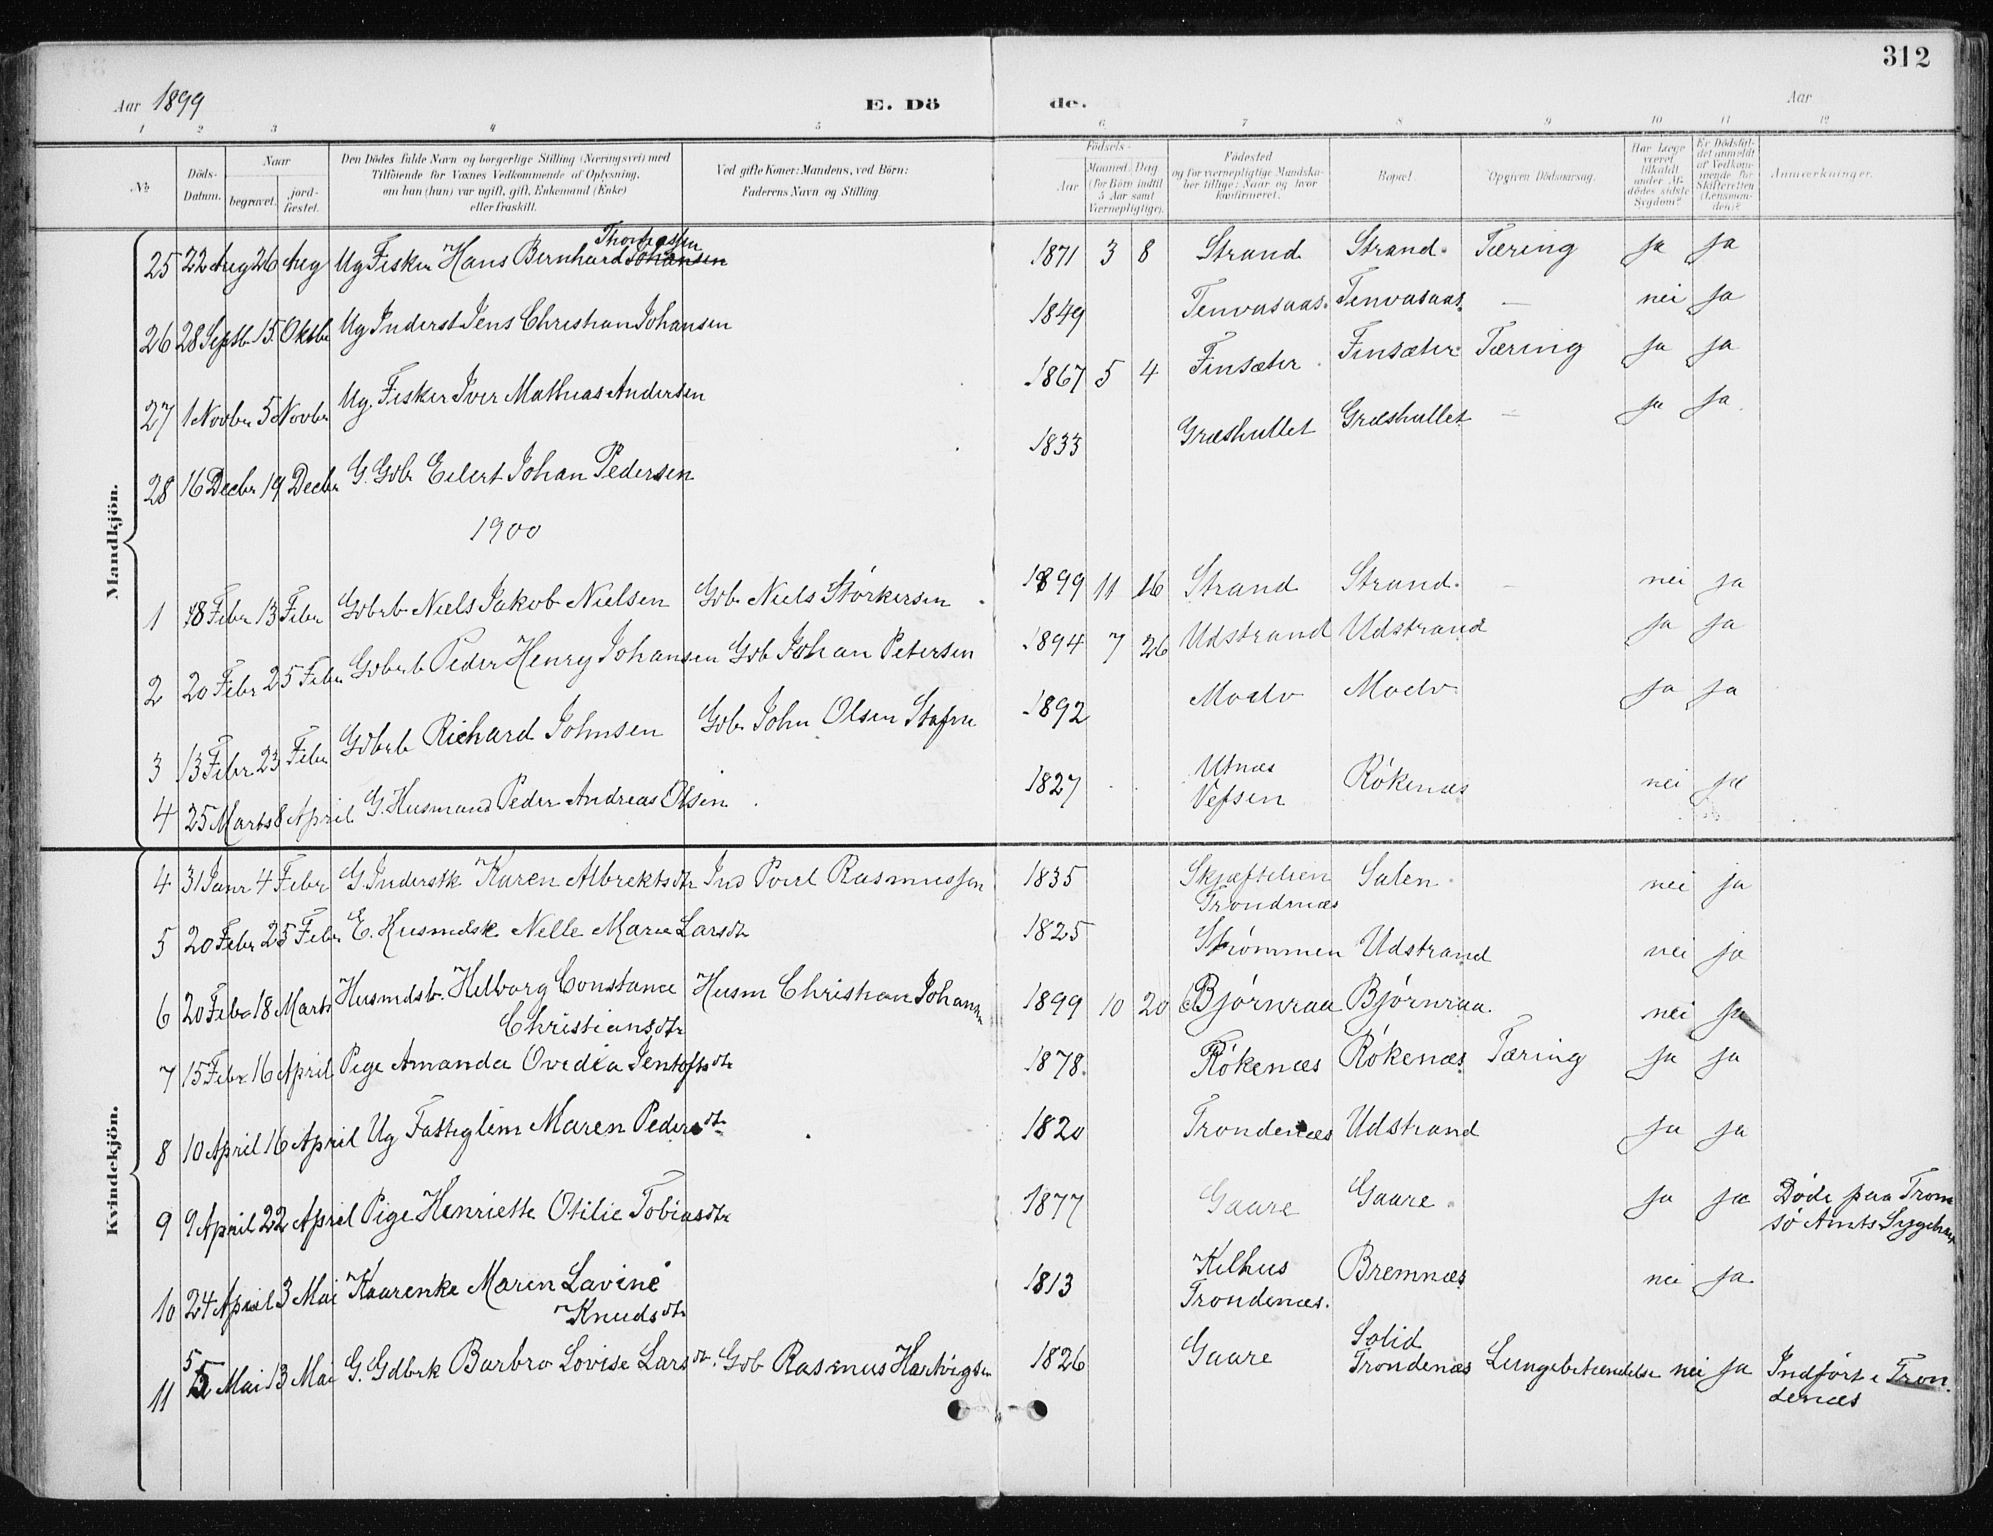 312
Aar 1899 E. Dö de. Aar
1 2 3 4 5 6 7 8 9 10 11 12
No. Döds-Datum. Naar begravet. jord-fæstet. Den Dödes fulde Navn og borgerlige Stilling (Næringsvei) med Tilföiende for Voxnes Vedkommende af Oplysning, om han (hun) var ugift, gift, Enkemand (Enke) eller fraskilt. Ved gifte Koner: Mandens, ved Börn: Faderens Navn og Stilling. Födsels- Aar Maaned Dag (for Börn indtil 5 Aar samt Værnepligtige). Födested og for værnepligtige Mandskaber tillige: Naar og hvor Konfirmeret. Bopæl. Opgiven Dödsaarsag. Har Læge været tilkaldt under Afdödes sidste Sygdom? Er Dödsfaldet anmeldt af Vedkommende for Skifteretten (Lensmanden)? Anmærkninger.
Mandkjön.
Thomassen
25 22 Aug 26 Aug Ug Fisker Hans Bernhard Johansen 1871 3 8 Strand Strand. Tæring ja ja
26 28 Septb. 15 Oktbr Ug Inderst Jens Christian Johansen 1849 Tenvasaas. Tenvasaas. — nei ja
27 1 Novbr 5 Novbr Ug. Fisker Iver Mathias Andersen 1867 5 4 Finsæter Finsæter Tæring ja ja
28 16 Decbr 19 Decbr G. Gbr Eilert Johan Pedersen 1833 Græshullet Græshullet — ja ja
1900
1 18 Febr 13 Febr Gbrb Niels Jakob Nielsen Gbr. Niels Störkersen 1899 11 16 Strand Strand. nei ja
2 20 Febr 25 Febr Gbrb Peder Henry Johansen Gb Johan Petersen 1894 7 26 Udstrand Udstrand ja ja
3 13 Febr 23 Febr Gbrb Richard Johnsen Gbr John Olsen 1892 ja ja
4 25 Marts 8 April G. Husmand Peder Andreas Olsen 1827 Utnæs Vefsen Rökenæs nei ja
Kvindekjön.
4 31 Janr 4 Febr G. Inderstk Karen Albrektsdtr Ind Povel Rasmussen 1835 Trondenæs Salen nei ja
5 20 Febr 25 Febr E. Husmdsk Nelle Marie Larsdtr 1825 Strömmen Udstrand nei ja
6 20 Febr 18 Marts Husmdsb. Helborg Constance Husm Christian Johansen 1899 10 20 Björnraa Björnraa. nei ja
Christiansdtr
7 15 Febr 16 April Pige Amanda Ovedia Jentoftsdtr 1878. Rökenæs Rökenæs Tæring ja ja
8 10 April 16 April Ug Fattiglem Maren Pedersdtr 1820 Trondenæs Udstrand ja ja
9 9 April 22 April Pige Henriette Otilie Tobiasdtr 1877 Gaare Gaare ja ja Döde paa Trom
sö Amts Sygehus
10 24 April 3 Mai Kaarenke Maren Lavine 1813 Kilhus Bremnæs nei ja
Knudsdtr Trondenæs.
11 5 Mai 13 Mai G. Gdbrk Barbro Lovise Larsdtr. Gdb Rasmus Hartvigsen 1826 Gaare Solid Trondenæs Lungebetændelse nei ja Indfört i Tron
denæs